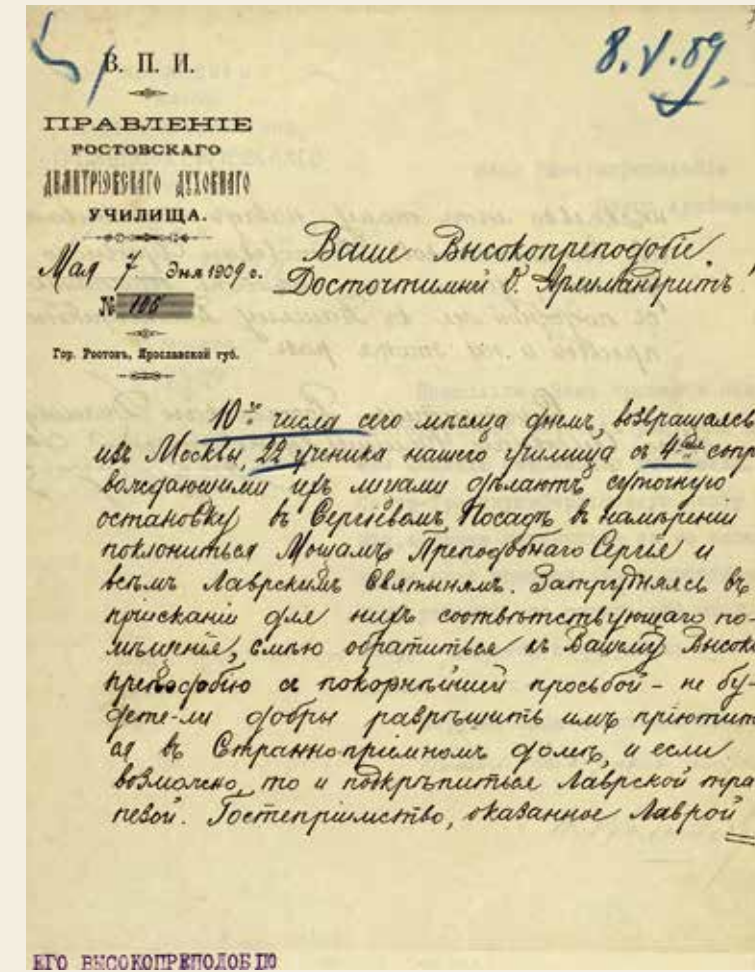 8.V.09.
В. П. И.
ПРАВЛЕНІЕ
РОСТОВСКАГО
ДИМИТРІЕВСКАГО ДУХОВНАГО
УЧИЛИЩА.
Мая 7 дня 1909 г.
№ 106
Гор. Ростовъ, Ярославской губ.
Ваше Высокопреподобіе,
Досточтимый О. Архимандритъ
10го числа сего мѣсяца днемъ, возвращаясь
изъ Москвы, 22 ученика нашего училища съ 4мя сопро
вождающими ихъ лицами дѣлаютъ суточную
остановку въ Сергіевомъ Посадѣ въ намѣреніи
поклониться Мощамъ Преподобнаго Сергія и
всѣмъ Лаврскимъ Святынямъ. Затрудняясь въ
пріисканіи для нихъ соотвѣтствующаго по-
мѣщенія, смѣю обратиться къ Вашему Высоко
преподобію съ покорнѣйшей просьбой - не бу-
дете-ли добры разрѣшить имъ пріютить
ся въ Страннопріимномъ домѣ, и если
возможно, то и подкрѣпиться Лаврской тра
пезой. Гостепріимство, оказанное Лаврой
ЕГО ВЫСОКОПРЕПОДОБІЮ